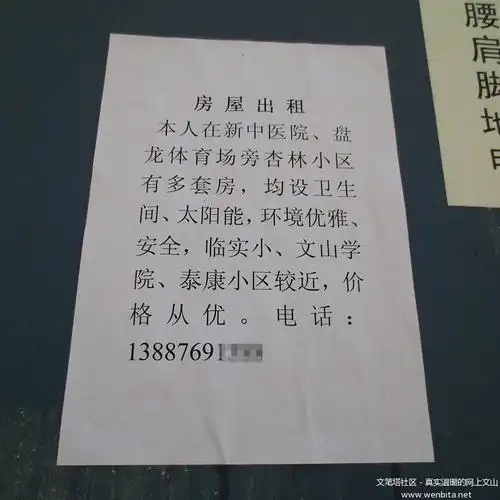 房屋出租
本人在新中医院、盘
龙体育场旁杏林小区
有多套房，均设卫生
间、太阳能，环境优雅、
安全，临实小、文山学
院、泰康小区较近，价
格从优。电话：
13887691
腰
肩
脚
地
文笔塔社区 - 真实温暖的网上文山
www.wenbita.net